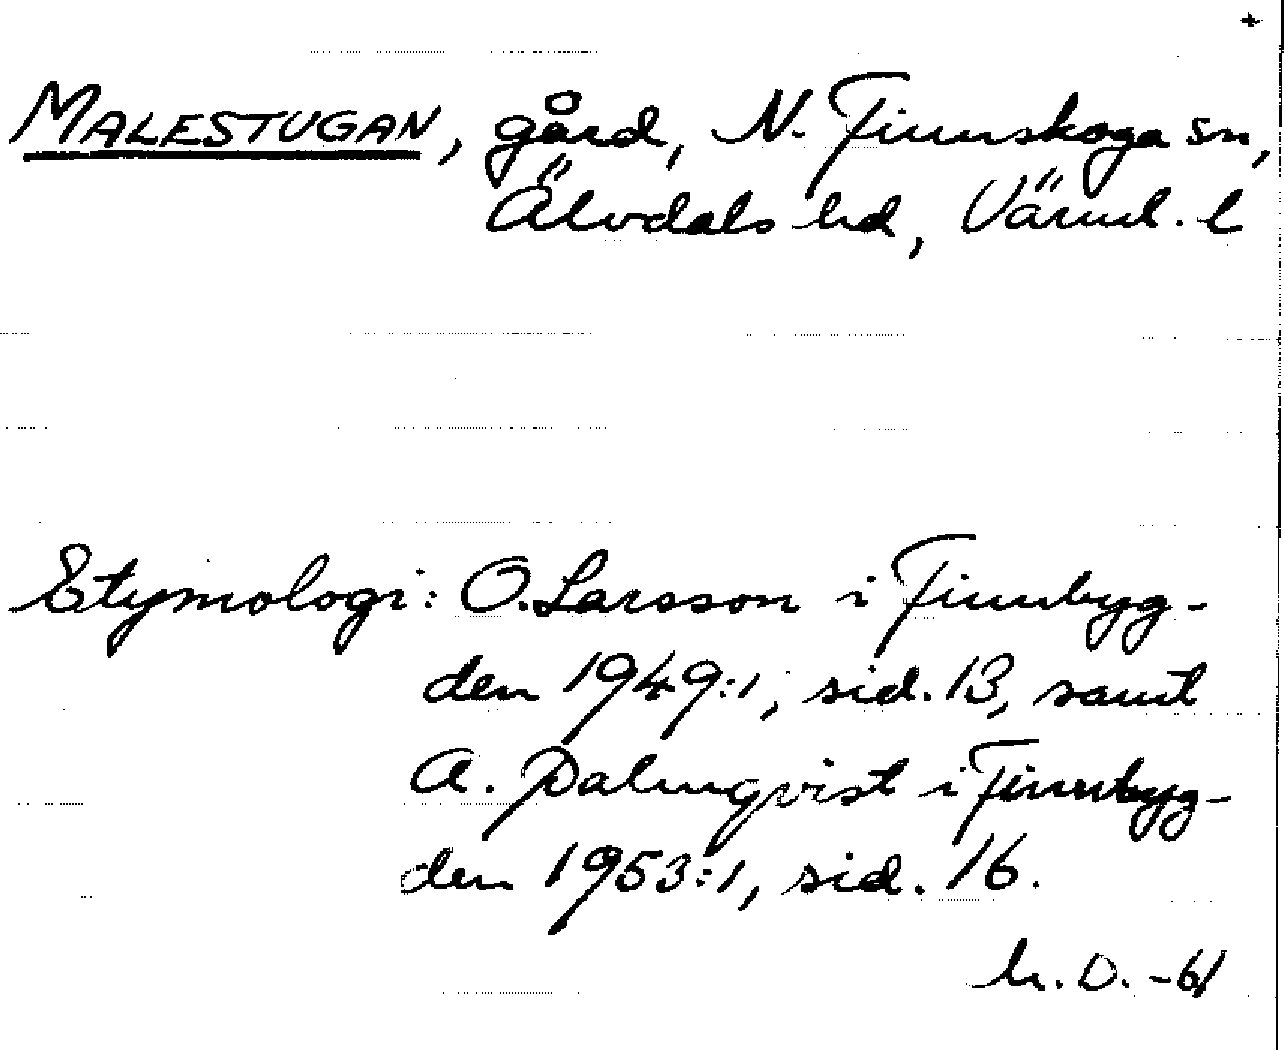 +
MALESTUGAN, gård, N. Finnskoga sn,
Älvdals hd, Värml. l
Etymologi: O. Larsson i Finnbyg-
den 1949:1, sid. 13, samt
A. Palmqvist i Finnbyg-
den 1953:1, sid. 16.
D. -61